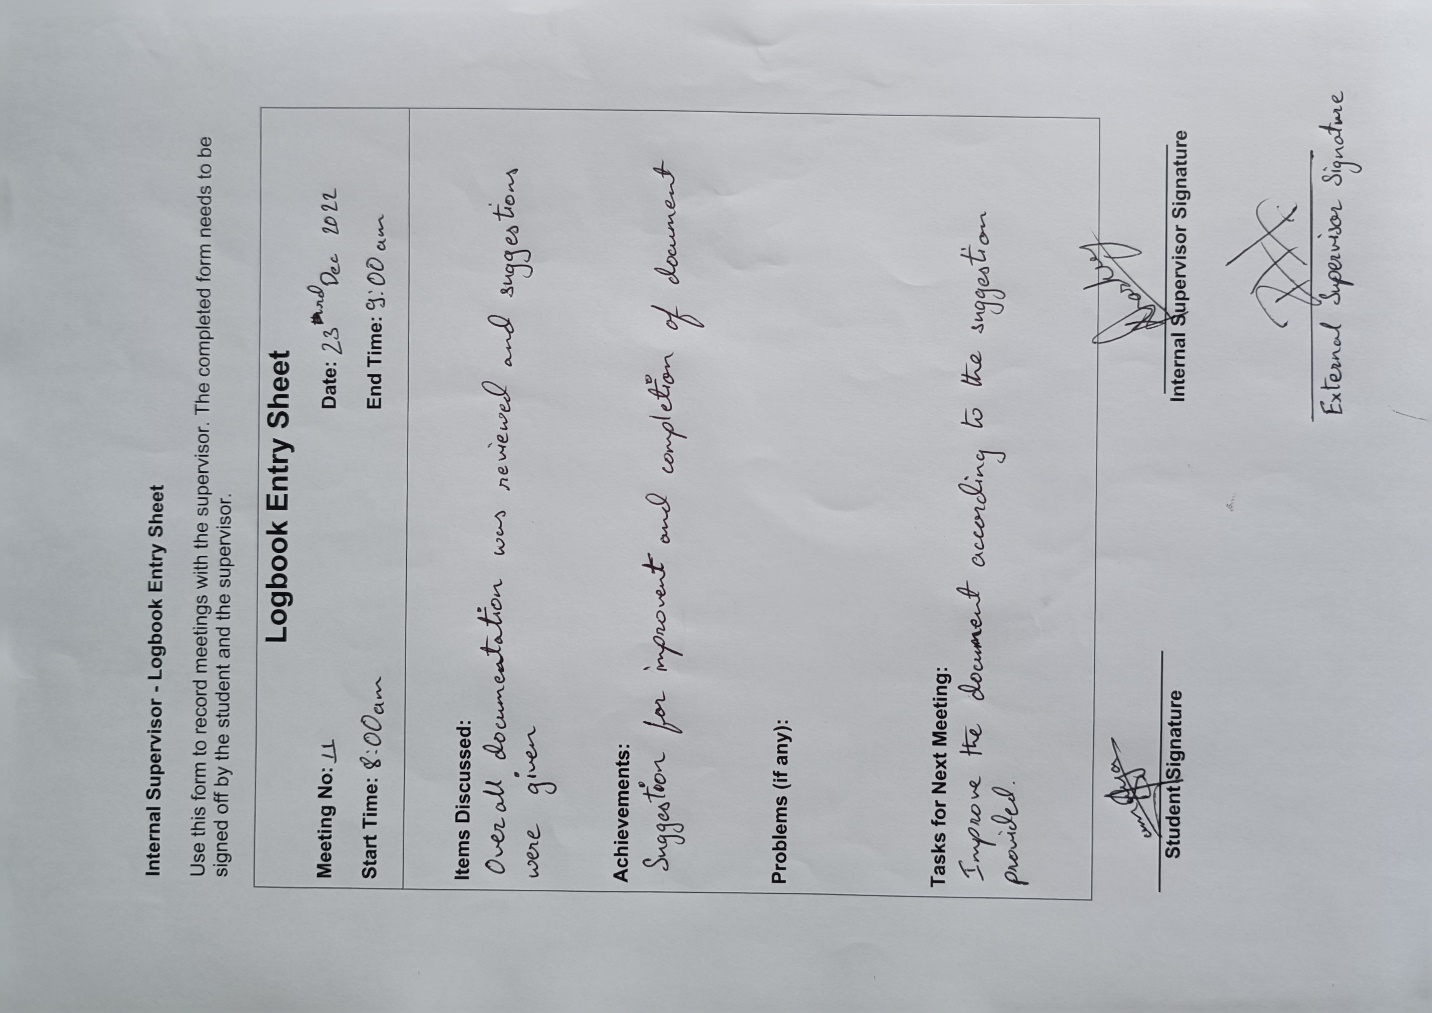 Internal Supervisor - Logbook Entry Sheet
Use this form to record meetings with the supervisor. The completed form needs to be
signed off by the student and the supervisor.
Logbook Entry Sheet
Meeting No: 11 Date: 23rd Dec 2022
Start Time: 8:00am End Time: 9:00am
Items Discussed:
Overall documentation was reviewed and suggestions
were given
Achievements:
Suggestion for improvent and completion of document
Problems (if any):
Tasks for Next Meeting:
Improve the document according to the suggestion
provided.
Student Signature Internal Supervisor Signature
External Supervisor Signature